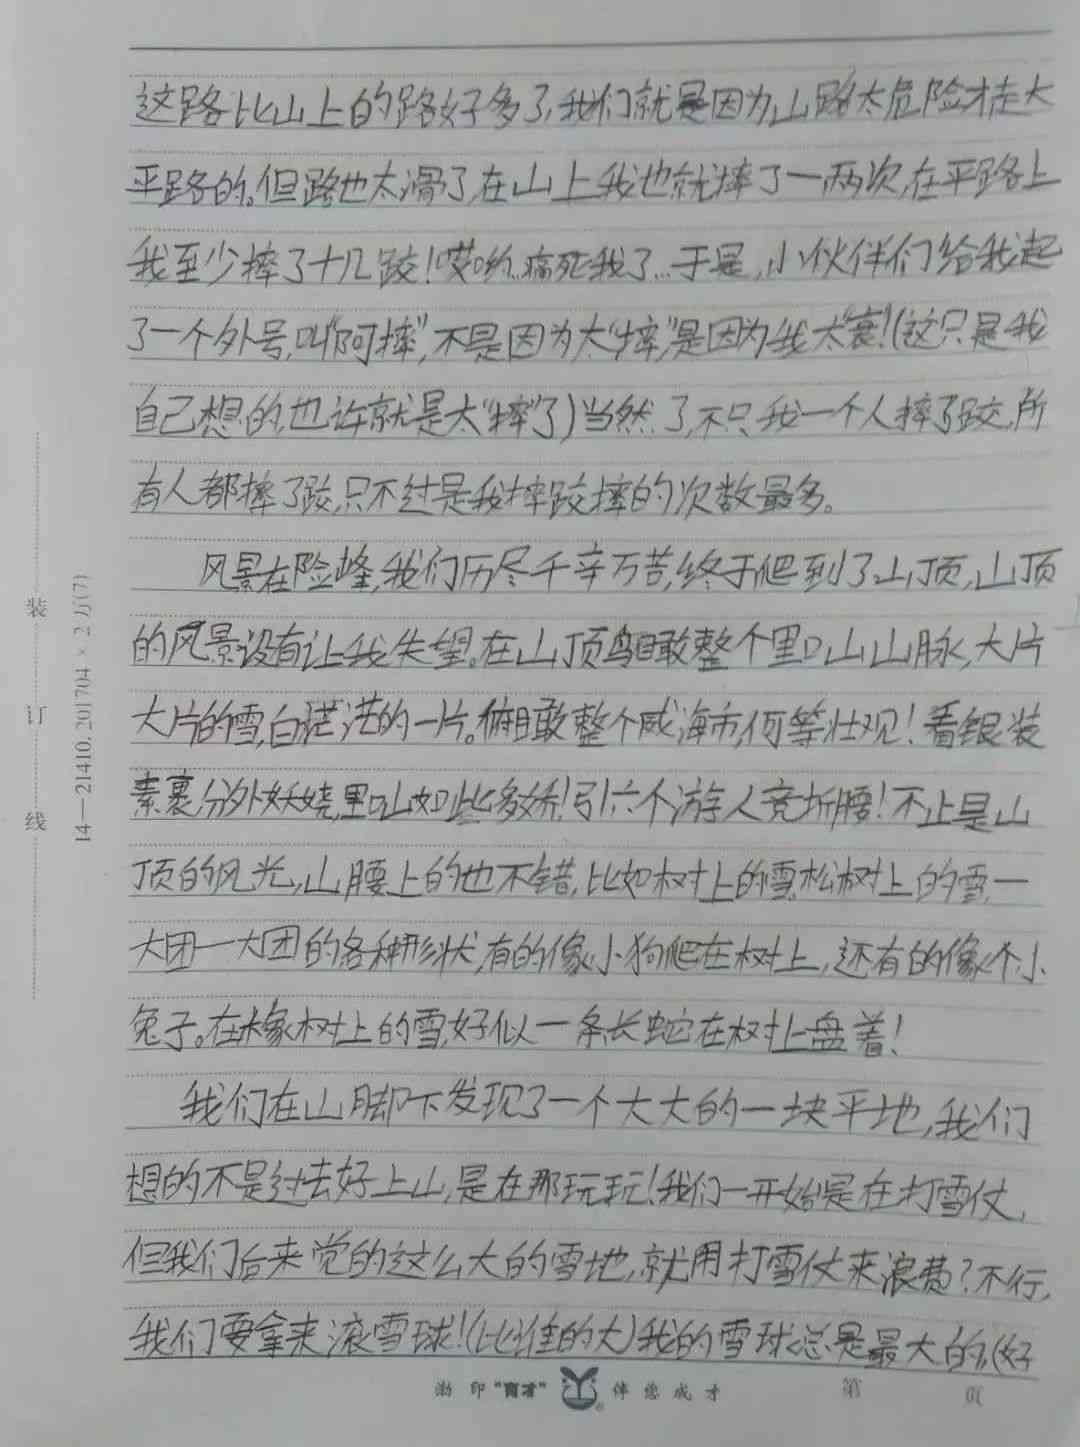 这路比山上的路好多了,我们就是因为山路太危险才走大
平路的。但路也太滑了,在山上我也就摔了一两次,在平路上
我至少摔了十几跤!哎哟..痛死我了...于是,小伙伴们给我起
了一个外号,叫"阿摔",不是因为太"摔",是因为我太"衰"!(这只是我
自己想的,也许就是太"摔"了)当然了,不只我一个人摔了跤,所
有人都摔了跤,只不过是我摔跤摔的次数最多。
风景在险峰,我们历尽千辛万苦,终于爬到了山顶,山顶
的风景没有让我失望。在山顶鸟瞰整个里口山山脉,大片
大片的雪,白茫茫的一片。俯瞰整个威海市,何等壮观!看银装
素裹,分外妖娆,里口山如此多娇!引六个游人竞折腰!不止是山
顶的风光,山腰上的也不错,比如树上的雪,松树上的雪,一
大团一大团的各种形状,有的像小狗爬在树上,还有的像个小
兔子。在橡树上的雪,好似一条长蛇在树上盘着!
我们在山脚下发现了一个大大的一块平地,我们
想的不是过去好上山,是在那玩玩!我们一开始是在打雪仗,
但我们后来觉的这么大的雪地,就用打雪仗来浪费?不行,
我们要拿来滚雪球!(比谁的大)我的雪球总是最大的,(好
装
订
线
14—21410.201704×2万(7)
渤印"育才" 伴您成才 第 页